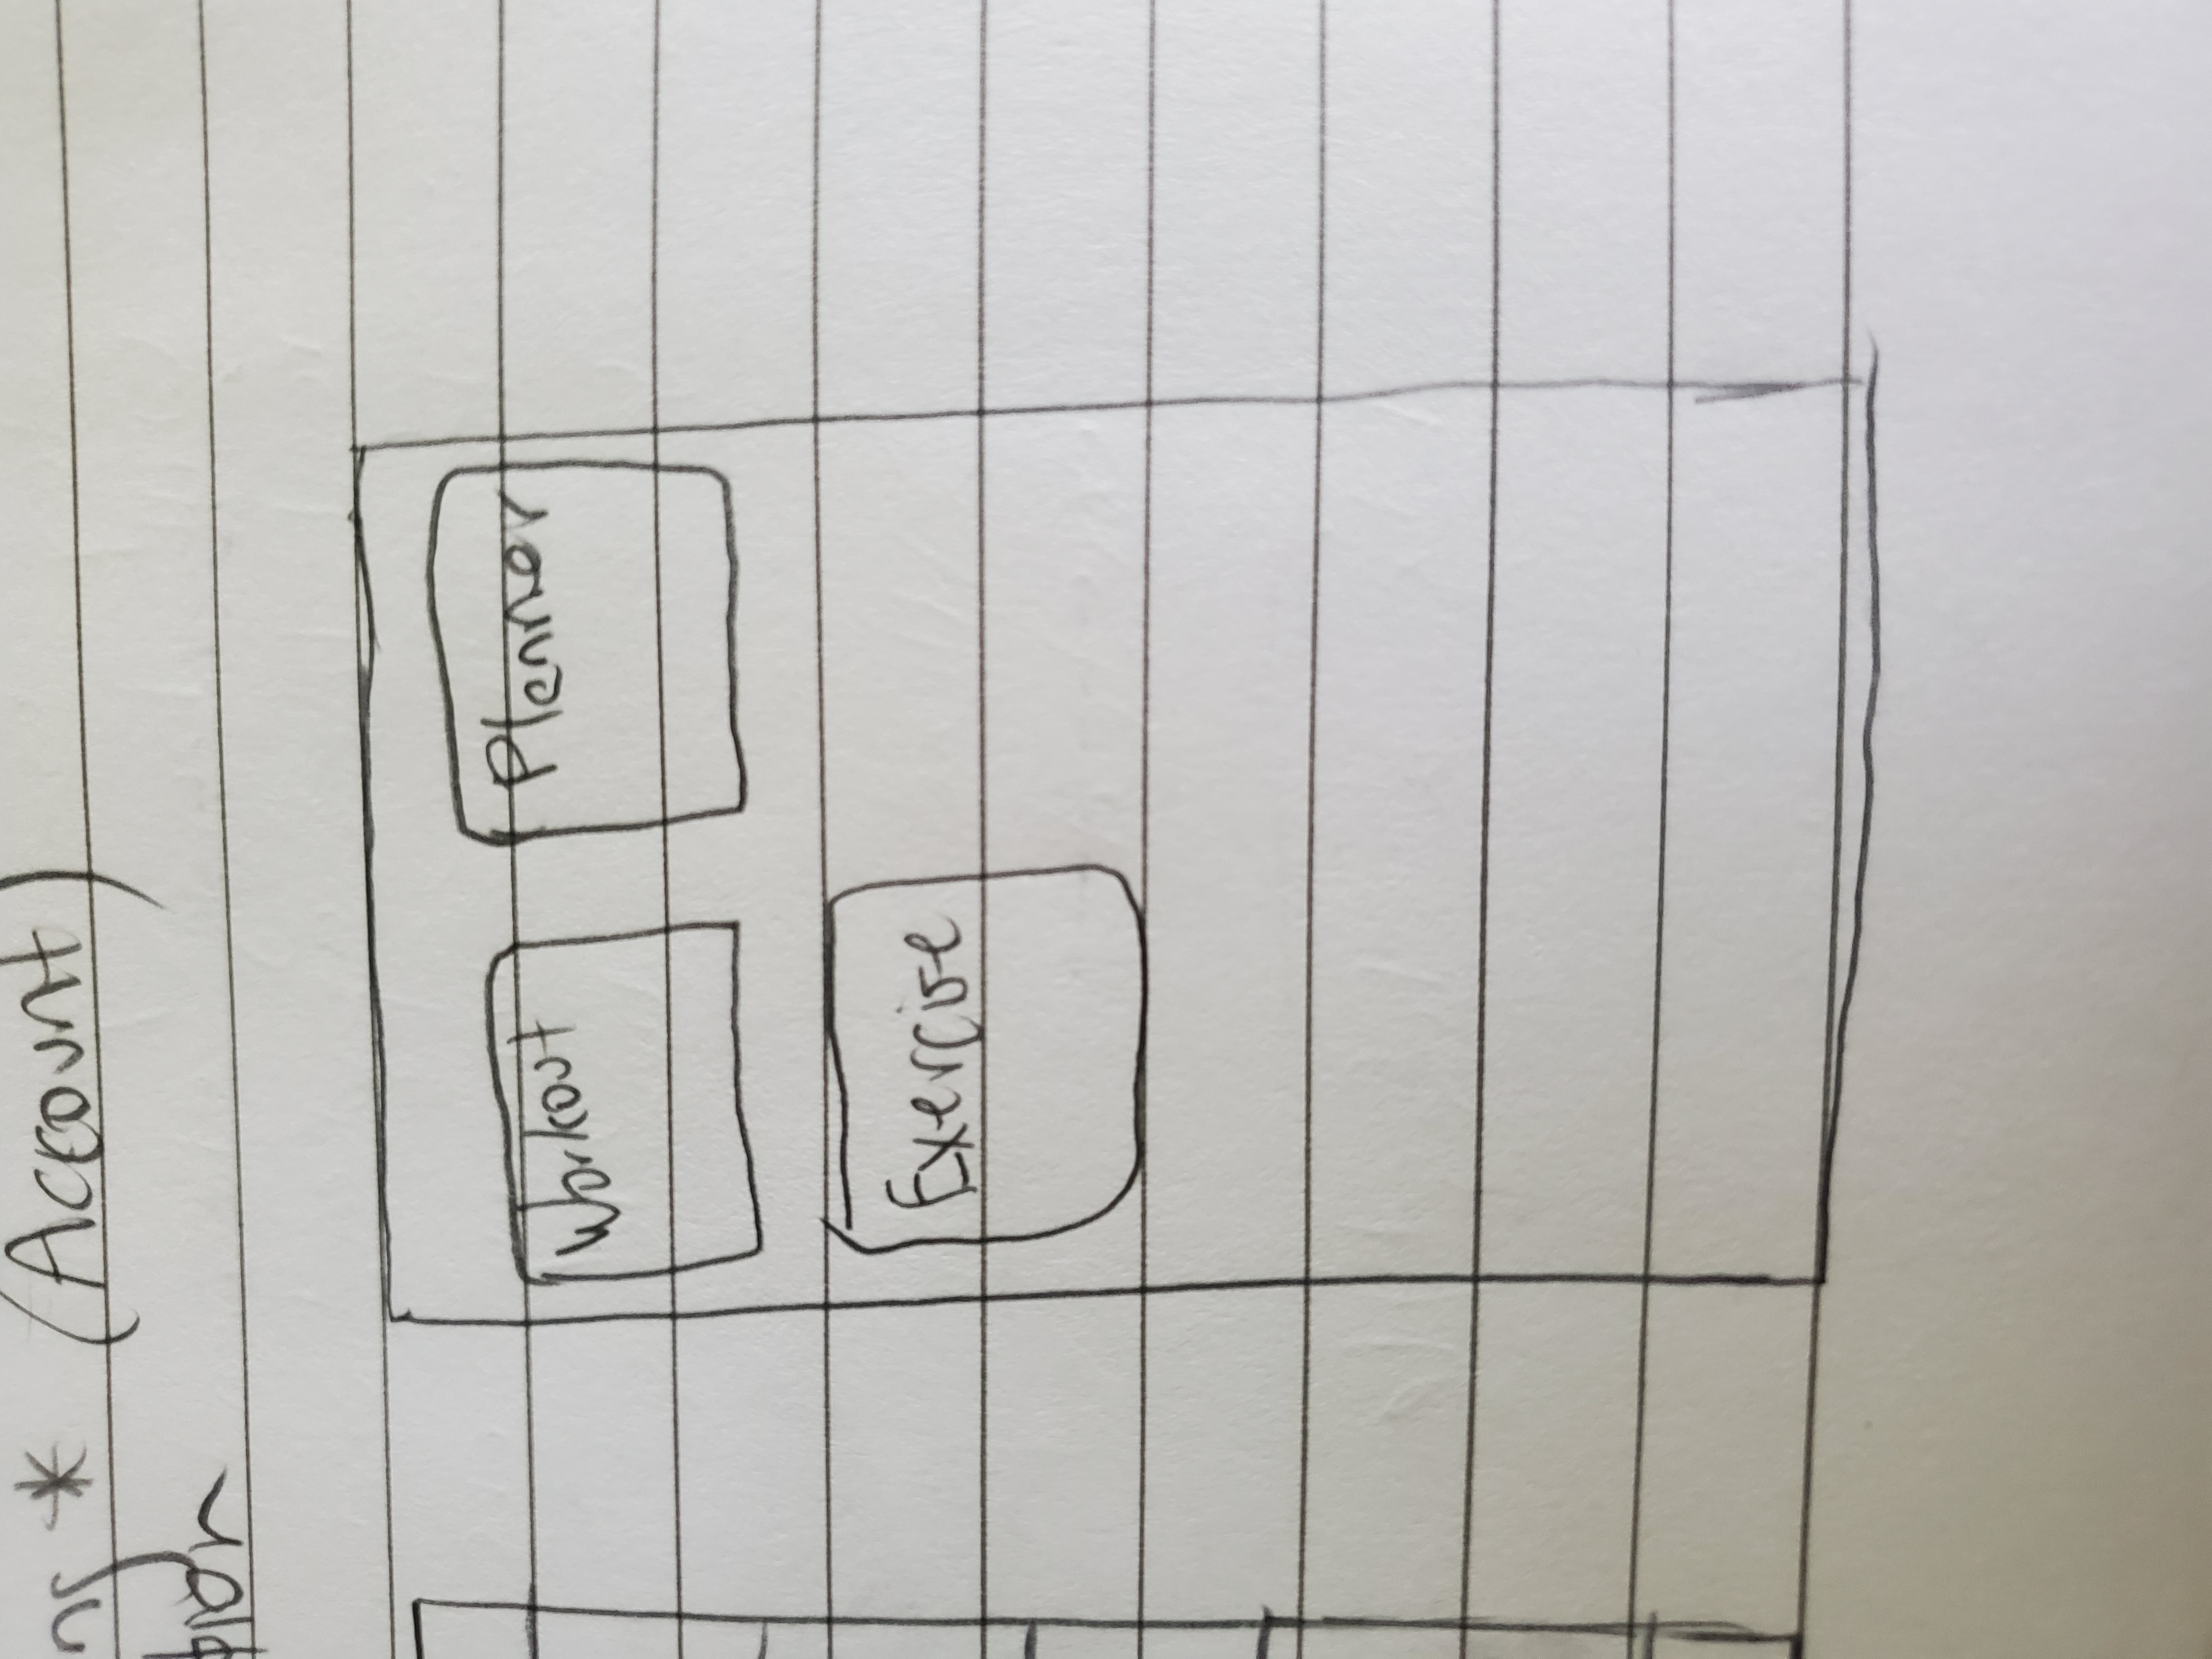 * (Account)
Workout Planner
Exercise